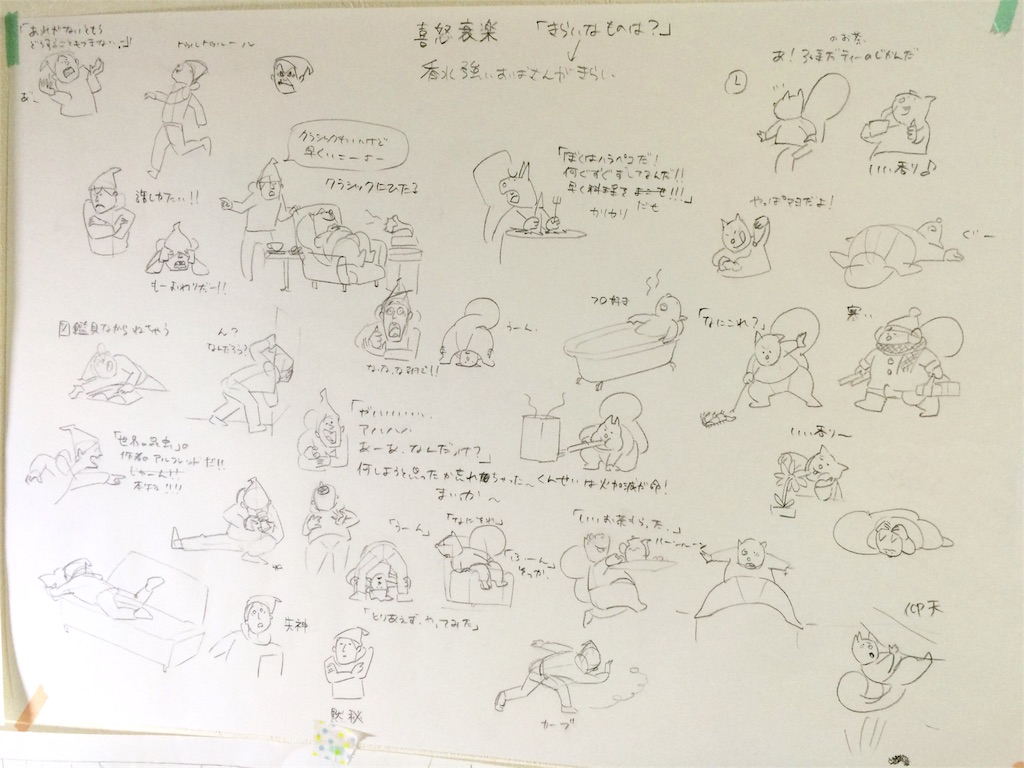 喜怒哀楽 「きらいなものは?」
香水強いおばさんがきらい
「あれがないともう
どうすることもできない…!」
トゥルトゥルール
クラシックもいいけど
早くいこーよー
クラシックにひたる
誰しかたい!!
もーおわりだー!!
「ぼくはハラペコだ!
何ぐずぐずしてるんだ!!
早く料理を
だせ
カリカリ
のお茶
あ!3時だティーのじかんだ
いい香り♪
やっぱマヨだよ!
ぐー
図鑑見ながらねちゃう
んっ
なんだろう?
な、な、な何て!!
うーん、
フロ好き
「なにこれ?」
寒い
「世界の昆虫」の
作者のアルフレッドだ!!
じゃーん!!
「がハハハハハハ
アハハハハ
あーあ、なんだっけ?」
何しようと思ったか忘れちゃった〜
まいっか〜
くんせいは火加減が命!
いい香り〜
「うーん」
「なにそれ」
「ふーん
そっか、
「いいお茶もらった…」
「とりあえず、やってみた」
失神
黙秘
カーブ
仰天